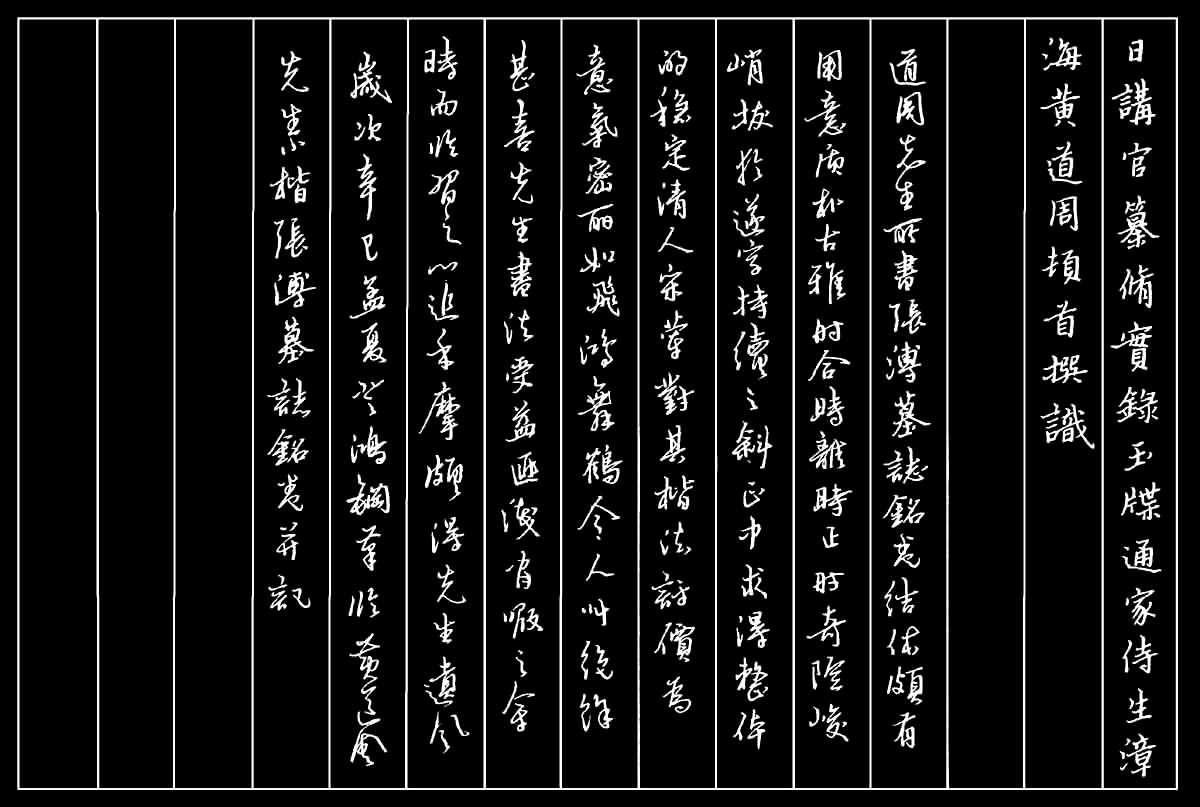 日講官纂脩實錄玉牒通家侍生漳
海黃道周頓首撰識
道周先生所書張溥墓誌銘卷結体頗有
用意质朴古雅时合時離時正时奇险峻
峭拔於逐字持續之斜正中求得整体
的稳定清人宋犖對其楷法評價為
意氣密丽如飛鴻舞鶴令人叫绝餘
甚喜先生書法受益匪淺有暇之余
時而临習之心追手摩頗得先生遺风
歲次辛巳孟夏 鴻鋼筆临黄道周
先生楷張溥墓誌銘卷并記